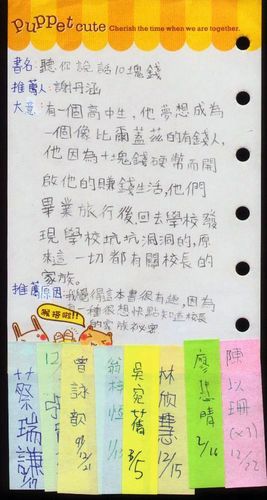 Puppet cute Cherish the time when we are together.
書名:聽你說話10塊錢
推薦人:謝丹涵
大意:有一個高中生,他夢想成為
一個像比爾蓋茲的有錢人,
他因為十塊錢硬幣而開
啟他的賺錢生活,他們
畢業旅行後,回去學校發
現學校坑坑洞洞的,原
來這一切都有關校長的
家族。
推薦原因:我覺得這本書很有趣,因為
有一種很想快點知道校長
的家族祕密
猴塔啦!!
蔡瑞謙
曾詠歆 9/12/21
翁梓恆 1/13
吳宛蒨 3/5
林欣慧 12/15
廖慧晴 2/16
陳以珊(x3) 12/22